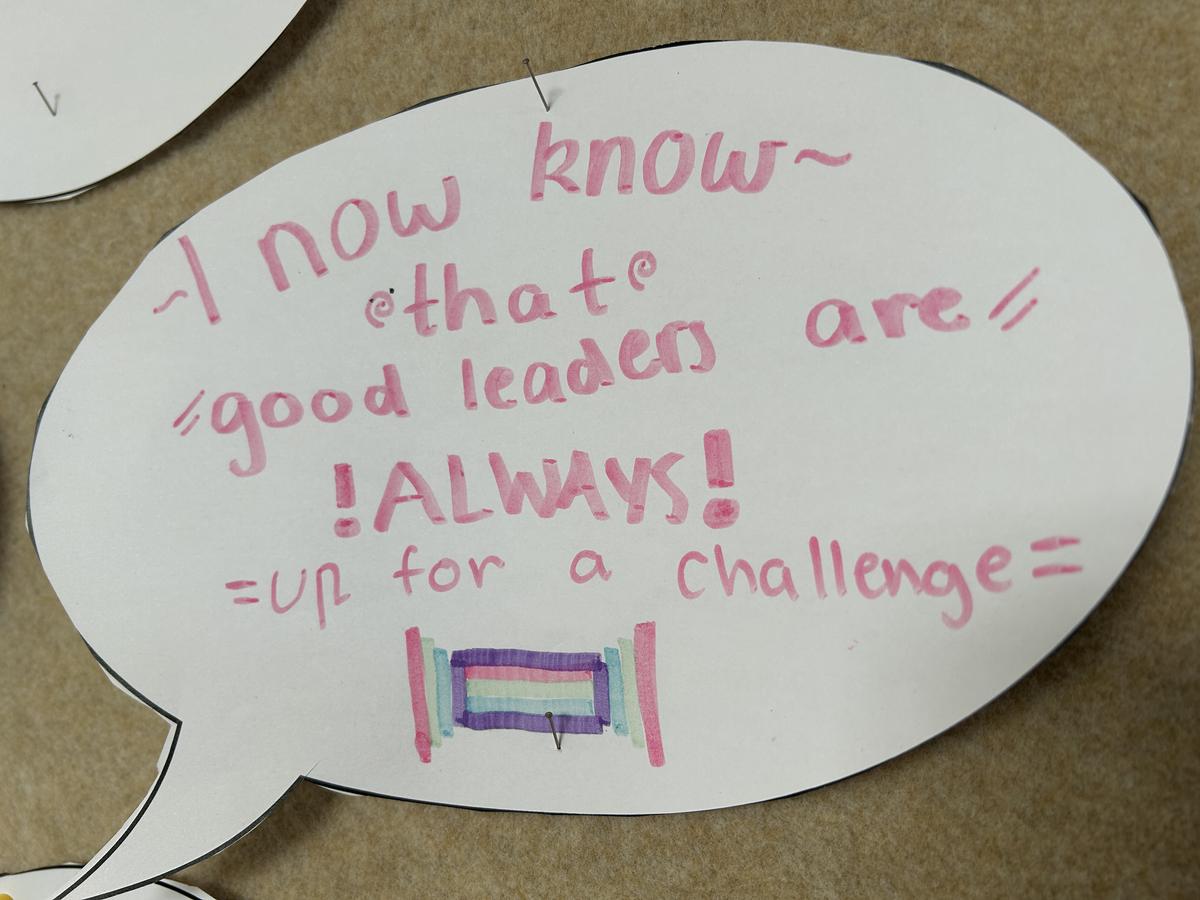 ~I now know~
that
good leaders are
!ALWAYS!
=up for a challenge=